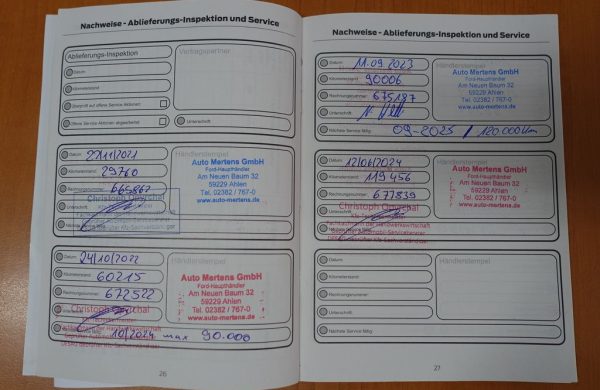 Nachweise - Ablieferungs-Inspektion und Service
Ablieferungs-Inspektion
Vertragspartner
Datum:
Kilometerstand:
Überprüft auf offene Service Aktionen
Offene Service Aktionen abgearbeitet
Unterschrift:
Datum: 22/11/2021
Kilometerstand: 29760
Rechnungsnummer: 665862
Unterschrift:
Händlerstempel
Auto Mertens GmbH
Ford-Haupthändler
Am Neuen Baum 32
59229 Ahlen
Tel. 02382 / 767-0
www.auto-mertens.de
Datum: 24/10/2022
Kilometerstand: 60215
Rechnungsnummer: 672522
10/2024 max 90.000
Händlerstempel
Auto Mertens GmbH
Ford-Haupthändler
Am Neuen Baum 32
59229 Ahlen
Tel. 02382 / 767-0
www.auto-mertens.de
26
Nachweise - Ablieferungs-Inspektion und Service
Datum: 11.09.2023
Kilometerstand: 90006
Rechnungsnummer: 675187
Unterschrift:
Nächste Service fällig: 09-2025 / 120.000 Km
Händlerstempel
Auto Mertens GmbH
Ford-Haupthändler
Am Neuen Baum 32
59229 Ahlen
Tel. 02382 / 767-0
www.auto-mertens.de
Datum: 12/06/2024
Kilometerstand: 119456
Rechnungsnummer: 677839
Händlerstempel
Auto Mertens GmbH
Ford-Haupthändler
Am Neuen Baum 32
59229 Ahlen
Tel. 02382 / 767-0
www.auto-mertens.de
Datum:
Kilometerstand:
Rechnungsnummer:
Unterschrift:
Nächste Service fällig:
Händlerstempel
27